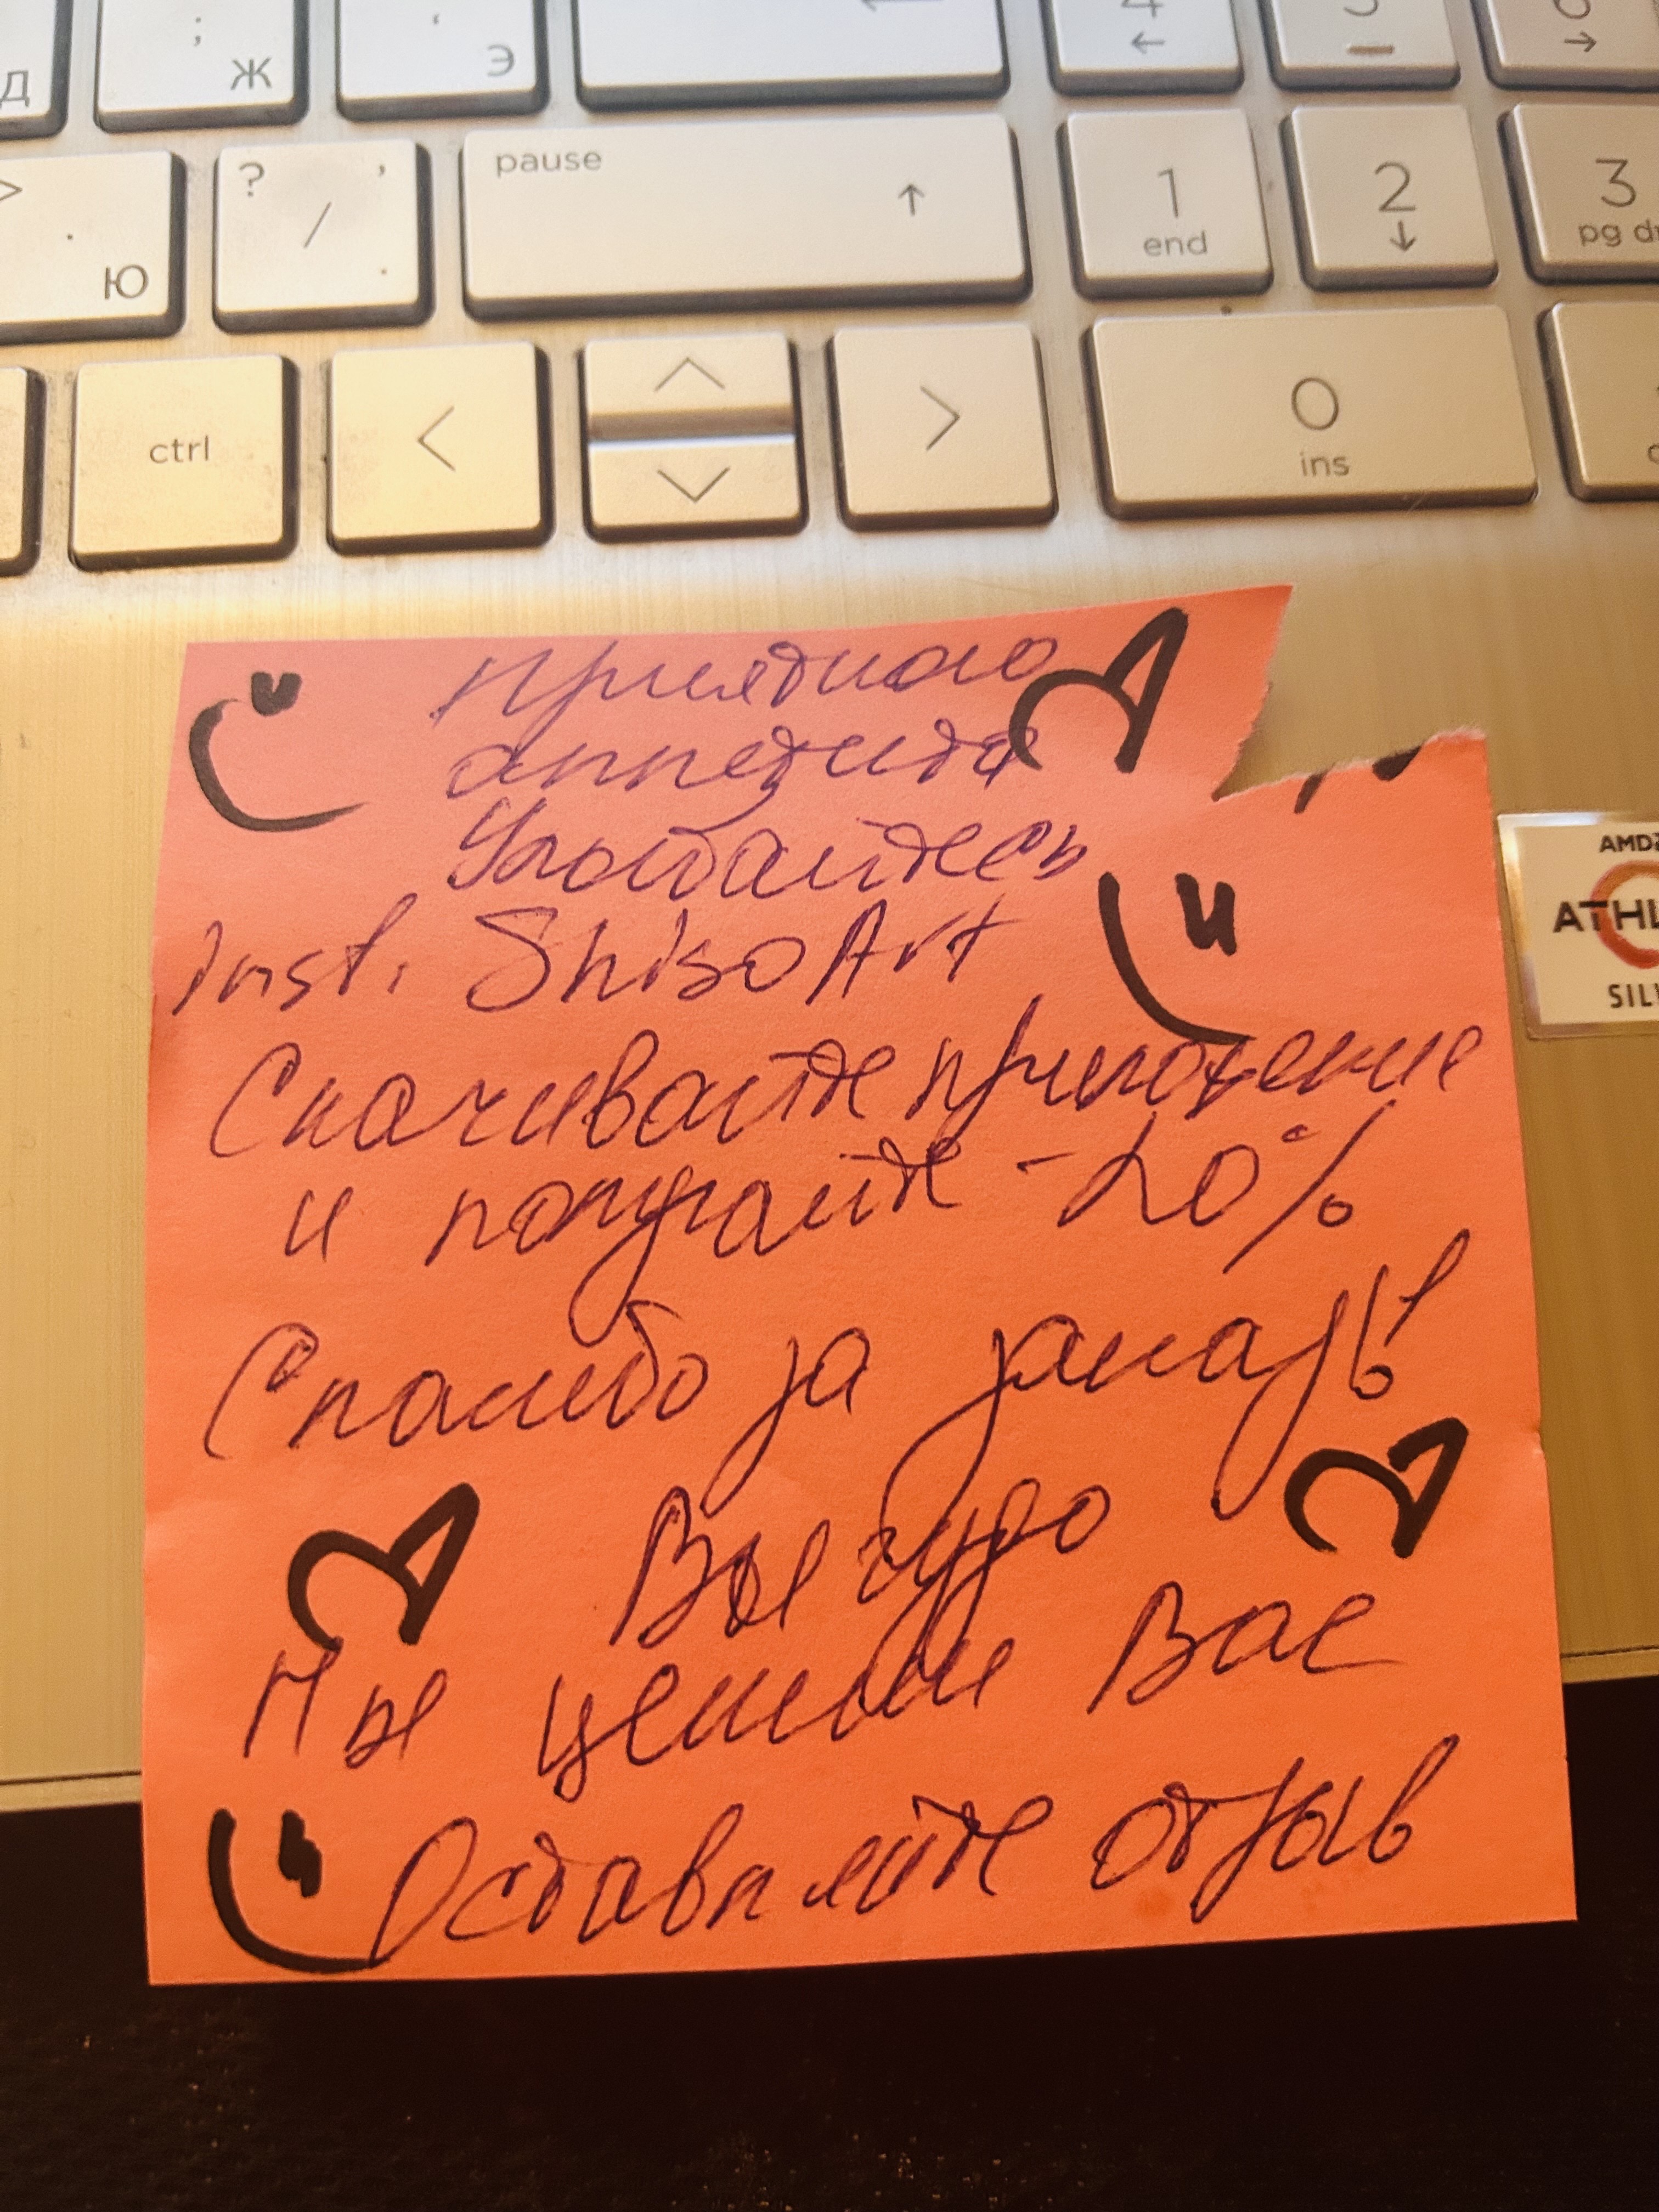 ; Ж
' Э
Д
4 ←
5
6 →
pause ↑
? , / .
> . Ю
1 end
2 ↓
3 pg d
ctrl
<
>
0 ins
Приятного
аппетита
Угощайтесь
inst. ShisoArt
Скачивайте приложение
и получайте -20%
Спасибо за заказ
Вы чудо
Мы ценим Вас
Оставляйте отзыв
AMD
ATHL
SILV